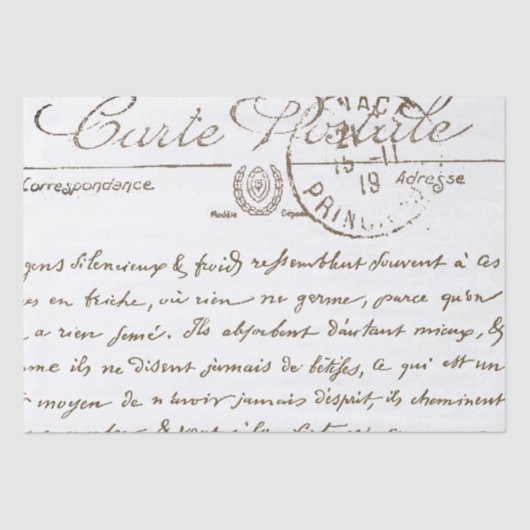 Carte Postale
15-11
19
Correspondance
Adresse
Modèle Déposé
gens silencieux & froids ressemblent souvent à ces
en friche, où rien ne germe, parce qu'on
a rien semé. Ils absorbent d'autant mieux, &
ils ne disent jamais de bêtises, ce qui est un
moyen de n'avoir jamais d'esprit, ils cheminent